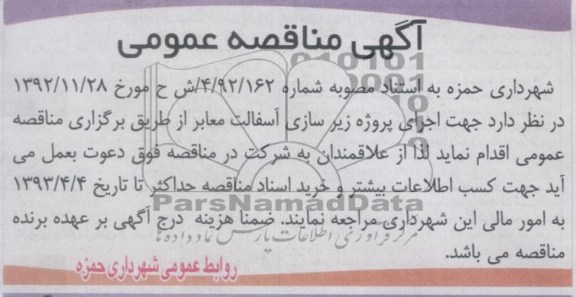 آگهی مناقصه عمومی
شهرداری حمزه به استناد مصوبه شماره ۴/۹۲/۱۶۲/ش ح مورخ ۱۳۹۲/۱۱/۲۸
در نظر دارد جهت اجرای پروژه زیر سازی آسفالت معابر از طریق برگزاری مناقصه
عمومی اقدام نماید لذا از علاقمندان به شرکت در مناقصه فوق دعوت بعمل می
آید جهت کسب اطلاعات بیشتر و خرید اسناد مناقصه حداکثر تا تاریخ ۱۳۹۳/۴/۴
ParsNamadData
به امور مالی این شهرداری مراجعه نمایند. ضمنا هزینه درج آگهی بر عهده برنده
مرکز فرآوری اطلاعات پارس نماد داده ها
مناقصه می باشد.
روابط عمومی شهرداری حمزه